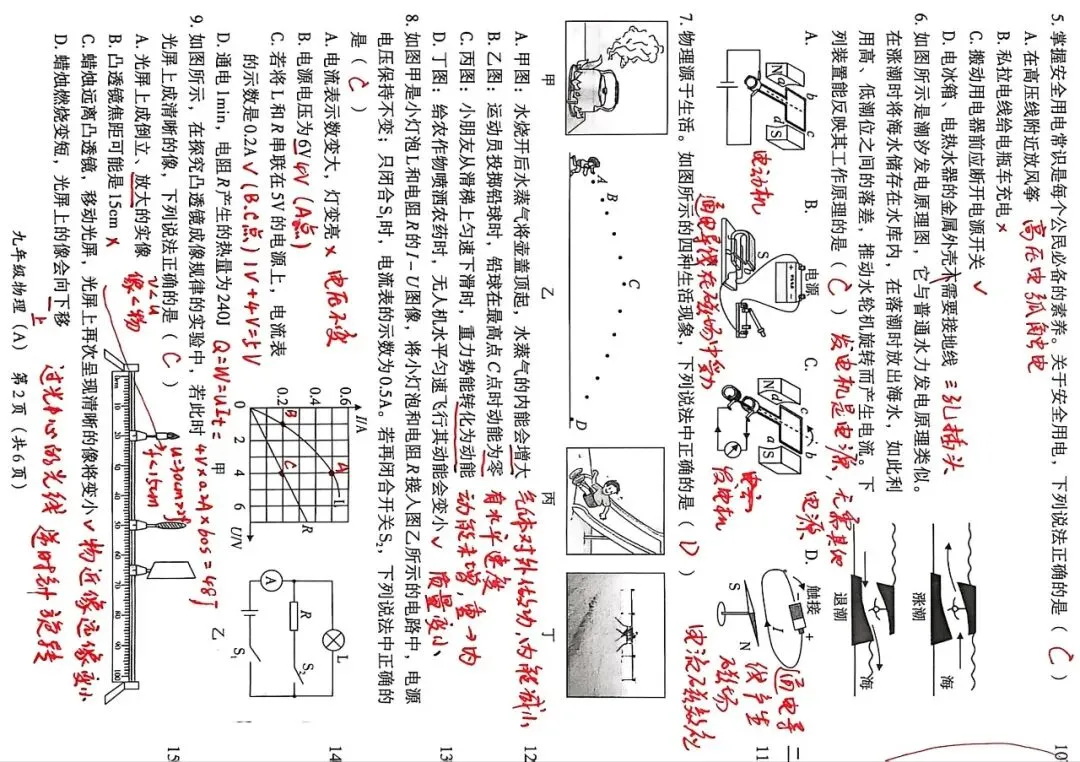 5. 掌握安全用电常识是每个公民必备的素养。关于安全用电，下列说法正确的是（ C ）
A. 在高压线附近放风筝 高压电弧触电
B. 私拉电线给电瓶车充电 ×
C. 搬动用电器前应断开电源开关 √
D. 电冰箱、电热水器的金属外壳不需要接地线 三孔插头
6. 如图所示是潮汐发电原理图，它与普通水力发电原理类似。
在涨潮时将海水储存在水库内，在落潮时放出海水，如此利
用高、低潮位之间的落差，推动水轮机旋转而产生电流。下
列装置能反映其工作原理的是（ C ）发电机是电源，无需其他电源
涨潮
海
退潮
海
A.
N
S
a
b
c
d
电动机
B.
电源
S
通电导线在磁场中受力
C.
N
S
a
b
c
d
发电机
D.
触接
I
S
N
通电导线产生磁场
电流磁效应
7. 物理源于生活。如图所示的四种生活现象，下列说法中正确的是（ D ）
A
B
C
D
甲
乙
丙
丁
A. 甲图：水烧开后水蒸气将壶盖顶起，水蒸气的内能会增大 气体对外做功，内能减小
B. 乙图：运动员投掷铅球时，铅球在最高点 C 点时动能为零 有水平速度
C. 丙图：小朋友从滑梯上匀速下滑时，重力势能转化为动能 动能未增，重→内
D. 丁图：给农作物喷洒农药时，无人机水平匀速飞行其动能会变小 √ 质量变小
8. 如图甲是小灯泡 L 和电阻 R 的 I－U 图像，将小灯泡和电阻 R 接入图乙所示的电路中，电源
电压保持不变；只闭合 S₁ 时，电流表的示数为 0.5A。若再闭合开关 S₂，下列说法中正确的
是（ C ）
A. 电流表示数变大，灯变亮 × 电压不变
B. 电源电压为 6V 4V（A点）
C. 若将 L 和 R 串联在 5V 的电源上，电流表
的示数是 0.2A √（B.C点）1V+4V=5V
D. 通电 1min，电阻 R 产生的热量为 240J Q=W=UIt=
4V×0.2A×60s=48J
I/A
0.6
0.4
0.2
0
2
4
6
U/V
A
B
C
L
R
甲
A
R
L
S₂
S₁
乙
9. 如图所示，在探究凸透镜成像规律的实验中，若此时
光屏上成清晰的像，下列说法正确的是（ C ）
A. 光屏上成倒立、放大的实像 v<u 像<物
B. 凸透镜焦距可能是 15cm × u=30cm>2f f<15cm
C. 蜡烛远离凸透镜，移动光屏，光屏上再次呈现清晰的像将变小 √ 物远像近像变小
D. 蜡烛燃烧变短，光屏上的像会向下移 上 过光心的光线 逆时针旋转
九年级物理（A） 第 2 页（共 6 页）
10
二
11
12
13
14
15